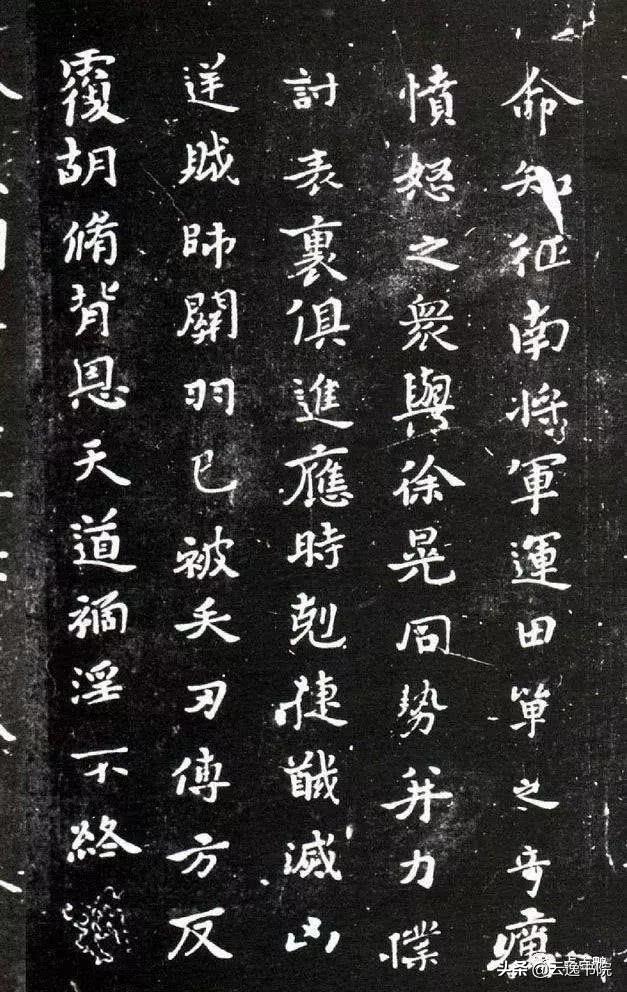 命知征南将軍運田單之奇
憤怒之衆與徐晃同势并力撲
討表裏俱進應時剋捷馘滅凶
逆賊帥關羽已被矢刃傅方反
覆胡脩背恩天道禍淫不終
头条 @云逸书院